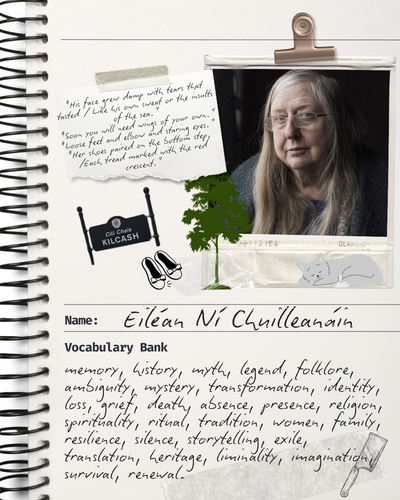 "His face grew damp with tears that
tasted / Like his own sweat or the insults
of the sea."
"Soon you will need wings of your own."
"Loose feet and elbow and staring eyes."
"Her shoes paired on the bottom step,
/Each tread marked with the red
crescent."
Cill Chais
KILCASH
Name: Eiléan Ní Chuilleanáin
Vocabulary Bank
memory, history, myth, legend, folklore,
ambiguity, mystery, transformation, identity,
loss, grief, death, absence, presence, religion,
spirituality, ritual, tradition, women, family,
resilience, silence, storytelling, exile,
translation, heritage, liminality, imagination,
survival, renewal.